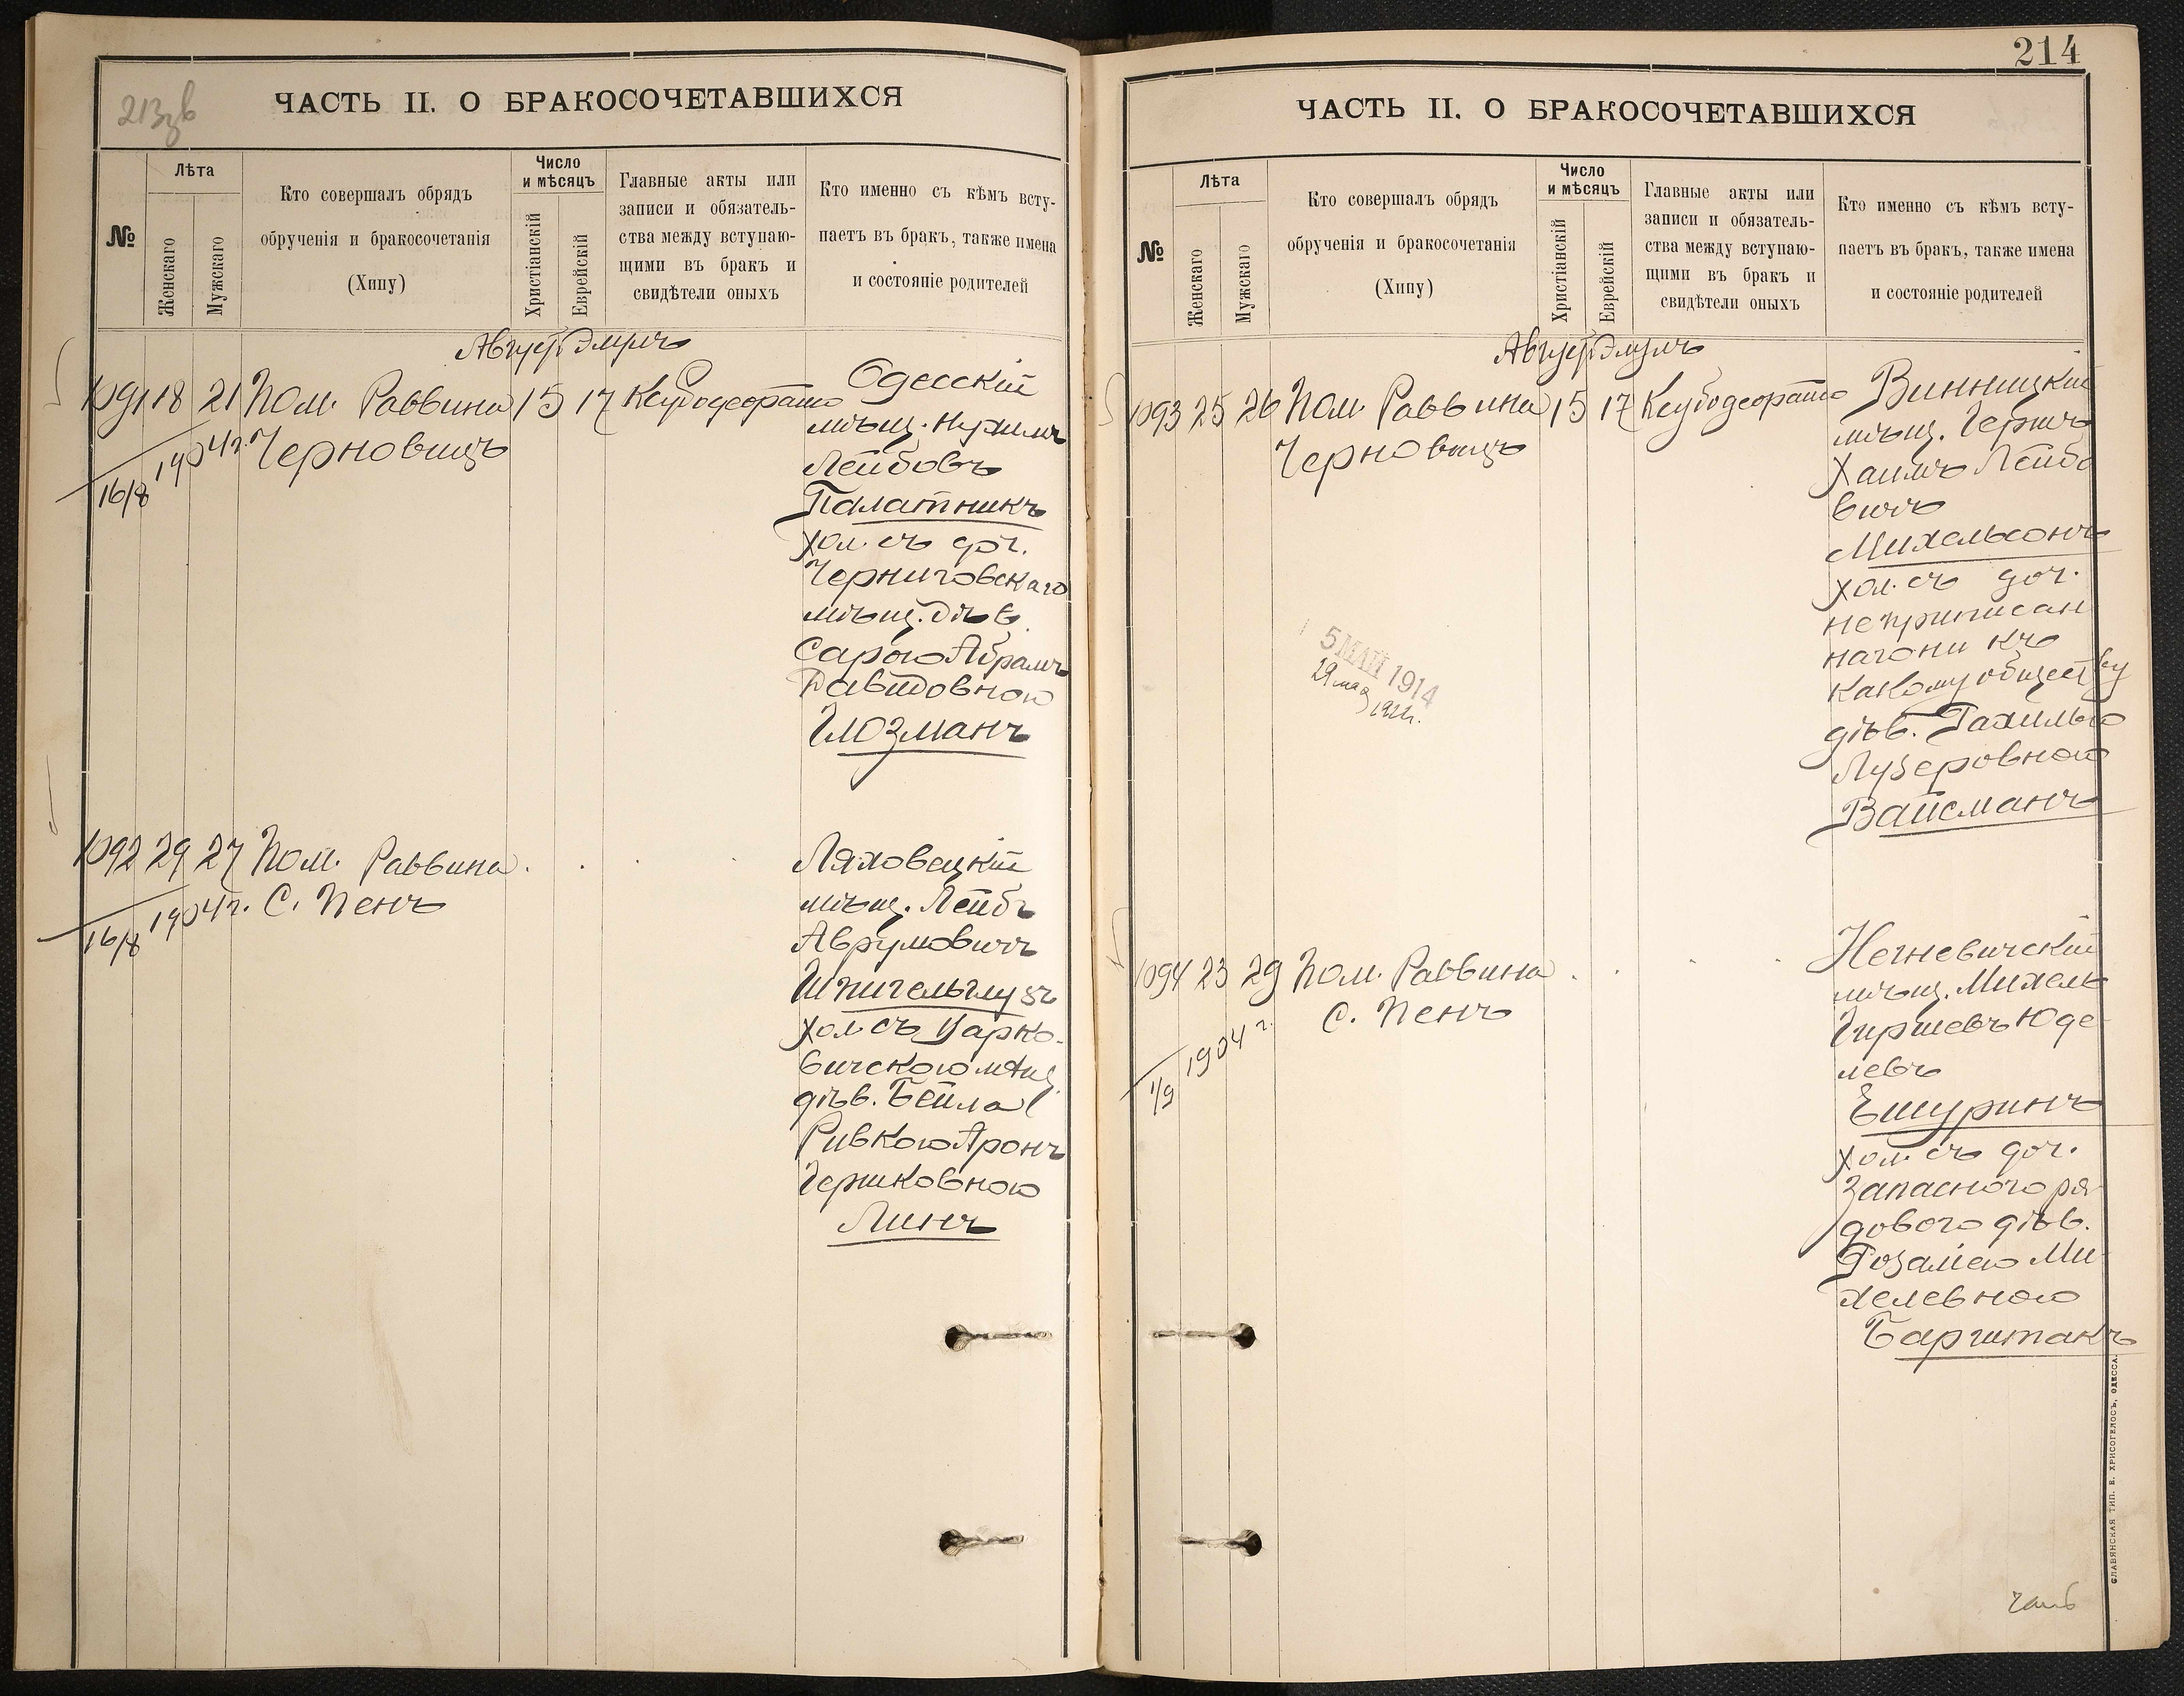 213 зв
ЧАСТЬ II. О БРАКОСОЧЕТАВШИХСЯ
№
Лѣта
Женскаго
Мужскаго
Кто совершалъ обрядъ
обрученія и бракосочетанія
(Хипу)
Число
и мѣсяцъ
Христіанскій
Еврейскій
Главные акты или
записи и обязатель-
ства между вступаю-
щими въ бракъ и
свидѣтели оныхъ
Кто именно съ кѣмъ всту-
паетъ въ бракъ, также имена
и состояніе родителей
Август Элулъ
1091 18 21 Пом. Раввина 15 17
Черновицъ
16/8 1904г.
Одесскій
мѣщ. Нухимъ
Лейбовъ
Палатникъ
хол. съ доч.
Черниговскаго
мѣщ. дѣв.
Сарою Абрамъ
Давидовною
Глозманъ
1092 29 27 Пом. Раввина
С. Пенъ
16/8 1904г.
Ляховецкій
мѣщ. Лейбъ
Аврумовичъ
Шпигельглузъ
хол. съ
вичскою мѣщ.
дѣв. Бейла
Ривкою Аронъ
Гершковною
Линъ
214
ЧАСТЬ II. О БРАКОСОЧЕТАВШИХСЯ
№
Лѣта
Женскаго
Мужскаго
Кто совершалъ обрядъ
обрученія и бракосочетанія
(Хипу)
Число
и мѣсяцъ
Христіанскій
Еврейскій
Главные акты или
записи и обязатель-
ства между вступаю-
щими въ бракъ и
свидѣтели оныхъ
Кто именно съ кѣмъ всту-
паетъ въ бракъ, также имена
и состояніе родителей
Август Элулъ
1093 25 26 Пом. Раввина 15 17
Черновицъ
5 МАЙ 1914
29 мая
Винницкій
мѣщ. Гершъ
Хаимъ Лейбо
вичъ
Михельсонъ
хол. съ доч.
неприписан
наго ни къ
какому обществу
дѣв. Рахилью
Лузеровною
Вайсманъ
1094 23 29 Пом. Раввина
С. Пенъ
1/9 1904 г.
Негневичскій
мѣщ. Михель
Гиршевъ Юде
левъ
Ешуринъ
хол. съ доч.
Запасного ря
дового дѣв.
Розаліею Ми
хелевною
Барштакъ
СЛАВЯНСКАЯ ТИП. Е. ХРИСОГЕЛОСЪ, ОДЕССА.